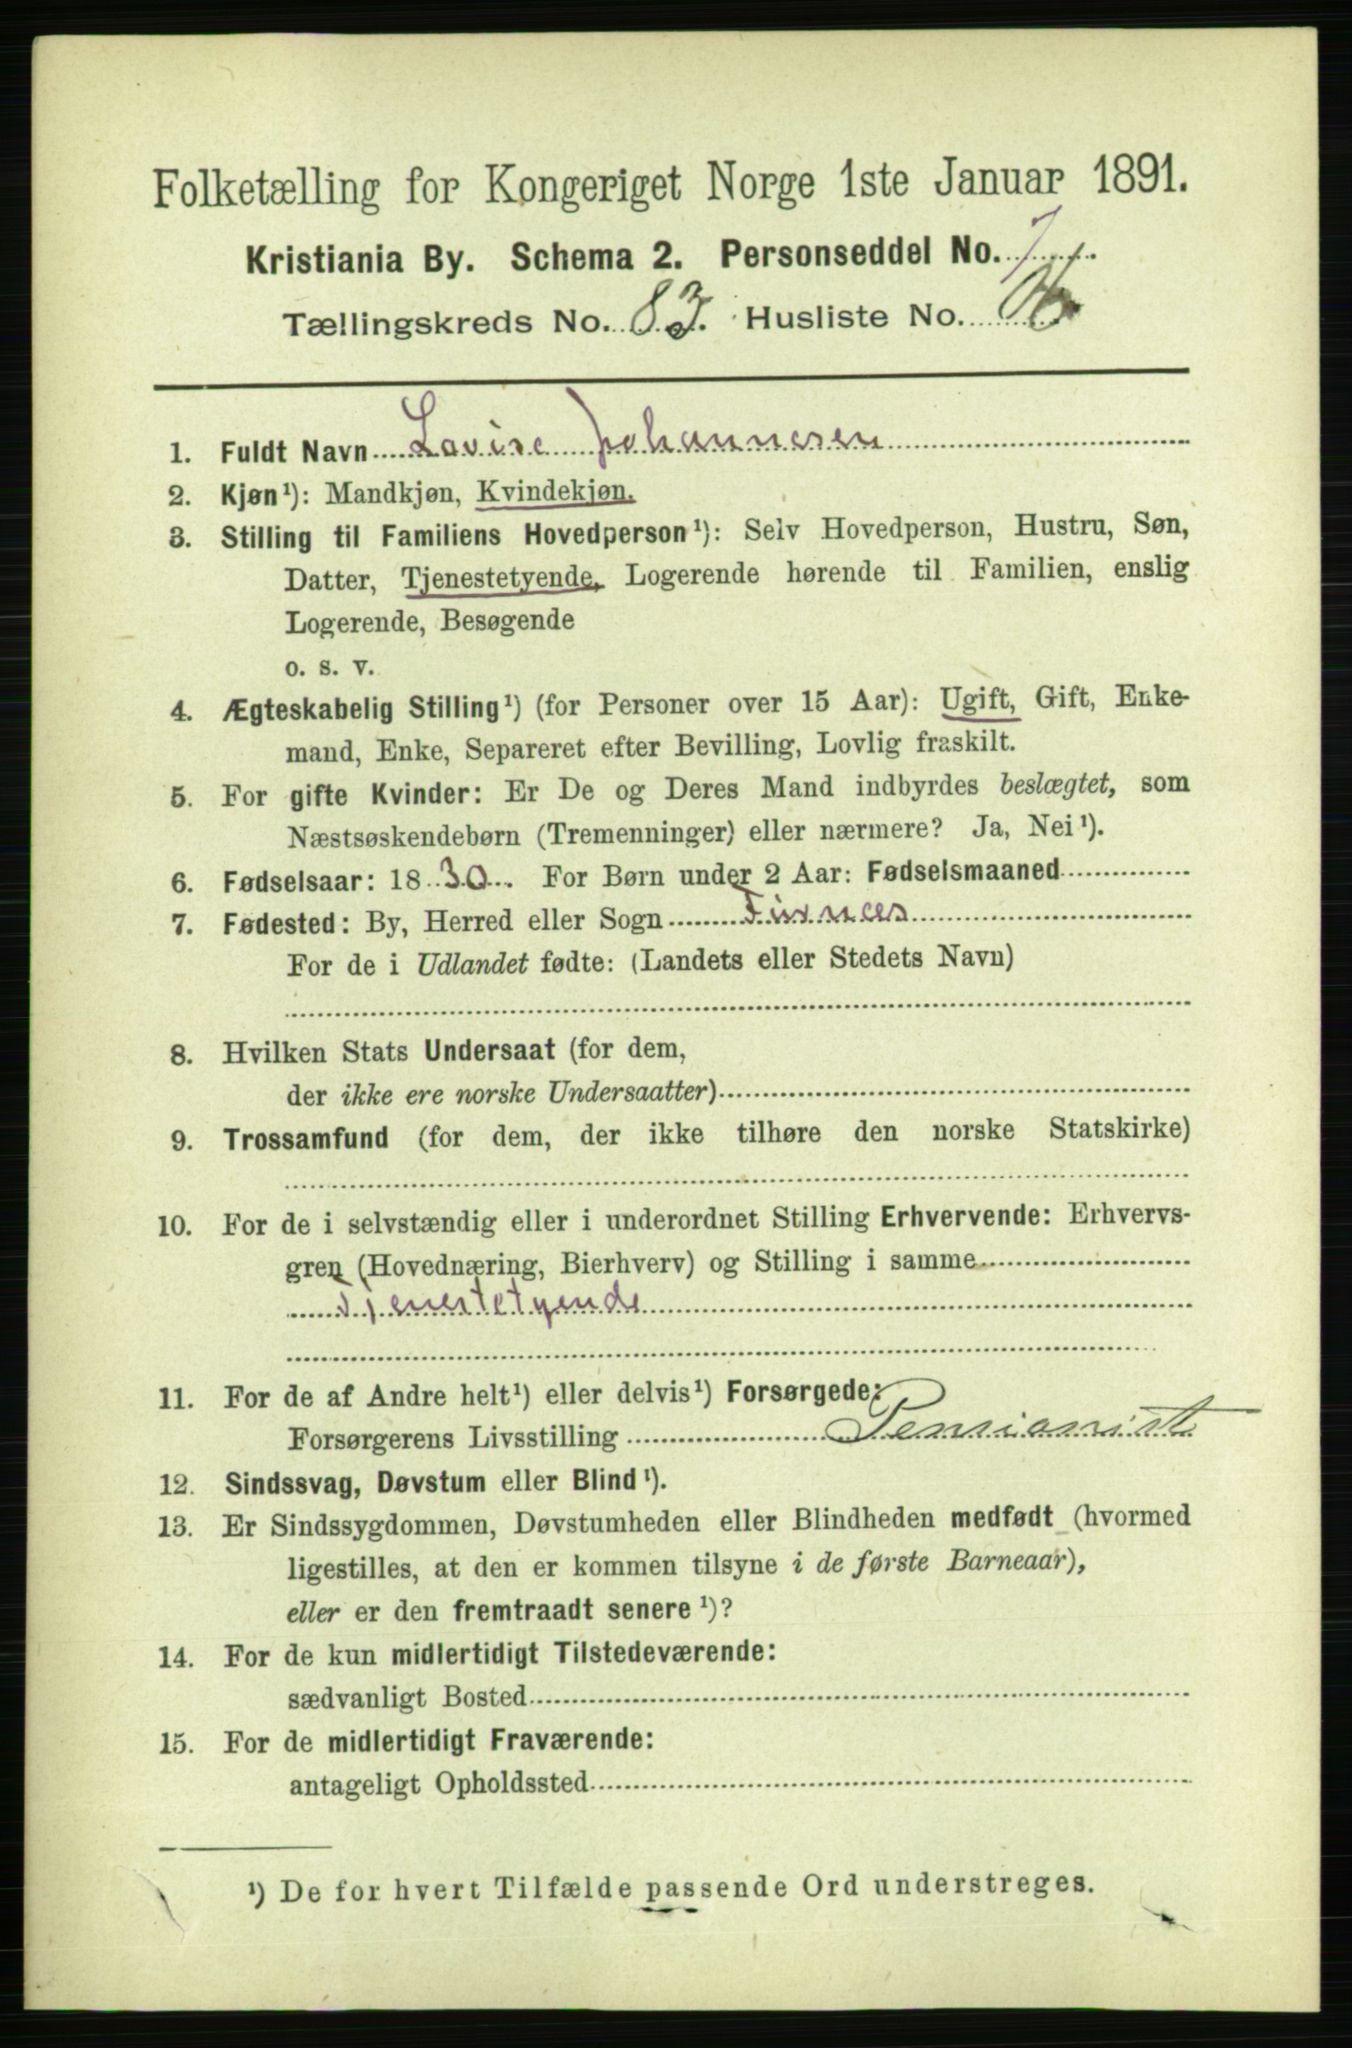 Folketælling for Kongeriget Norge 1ste Januar 1891.
Kristiania By. Schema 2. Personseddel No. 7
Tællingskreds No. 83. Husliste No.
1. Fuldt Navn Lovise Johannesen
2. Kjøn¹): Mandkjøn, Kvindekjøn.
3. Stilling til Familiens Hovedperson¹): Selv Hovedperson, Hustru, Søn,
Datter, Tjenestetyende, Logerende hørende til Familien, enslig
Logerende, Besøgende
o. s. v.
4. Ægteskabelig Stilling¹) (for Personer over 15 Aar): Ugift, Gift, Enke-
mand, Enke, Separeret efter Bevilling, Lovlig fraskilt.
5. For gifte Kvinder: Er De og Deres Mand indbyrdes beslægtet, som
Næstsøskendebørn (Tremenninger) eller nærmere? Ja, Nei¹).
6. Fødselsaar: 1830. For Børn under 2 Aar: Fødselsmaaned
7. Fødested: By, Herred eller Sogn Furnes
For de i Udlandet fødte: (Landets eller Stedets Navn)
8. Hvilken Stats Undersaat (for dem,
der ikke ere norske Undersaatter)
9. Trossamfund (for dem, der ikke tilhøre den norske Statskirke)
10. For de i selvstændig eller i underordnet Stilling Erhvervende: Erhvervs-
gren (Hovednæring, Bierhverv) og Stilling i samme
Tjenestetyende
11. For de af Andre helt¹) eller delvis¹) Forsørgede:
Forsørgerens Livsstilling Pensionist
12. Sindssvag, Døvstum eller Blind¹).
13. Er Sindssygdommen, Døvstumheden eller Blindheden medfødt (hvormed
ligestilles, at den er kommen tilsyne i de første Barneaar),
eller er den fremtraadt senere¹)?
14. For de kun midlertidigt Tilstedeværende:
sædvanligt Bosted
15. For de midlertidigt Fraværende:
antageligt Opholdssted
¹) De for hvert Tilfælde passende Ord understreges.